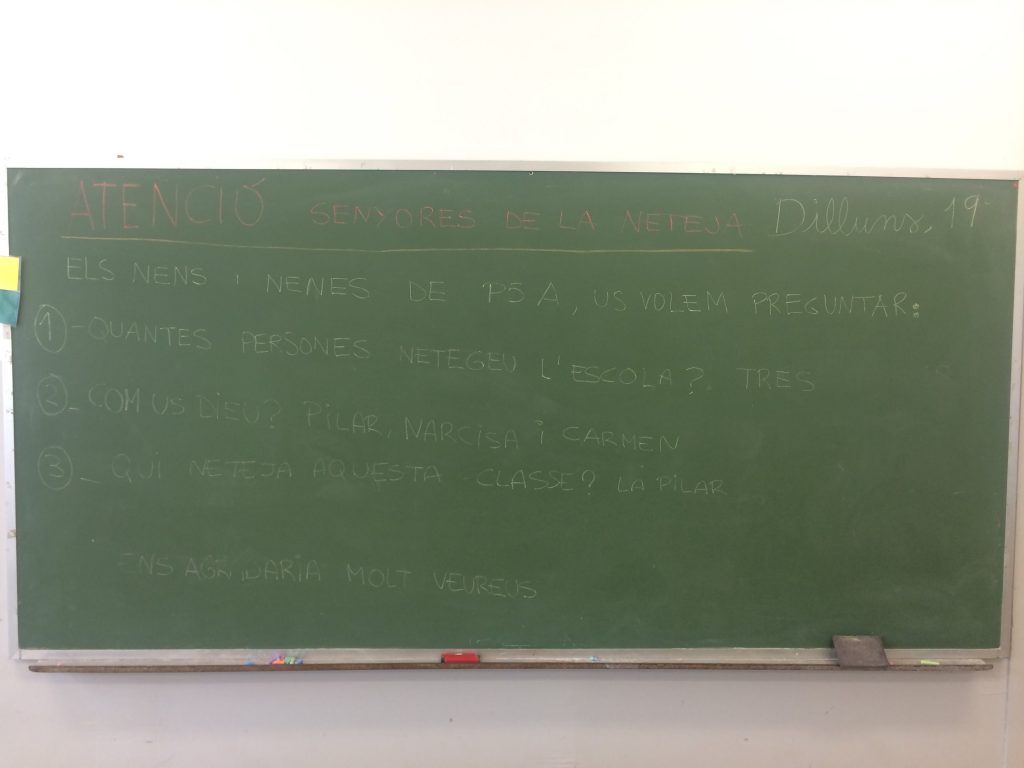 ATENCIÓ SENYORES DE LA NETEJA Dilluns, 19
ELS NENS i NENES DE P5 A, US VOLEM PREGUNTAR:
1 - QUANTES PERSONES NETEGEU L'ESCOLA? TRES
2 - COM US DIEU? PILAR, NARCISA i CARMEN
3 - QUI NETEJA AQUESTA CLASSE? LA PILAR
ENS AGRADARIA MOLT VEUREUS